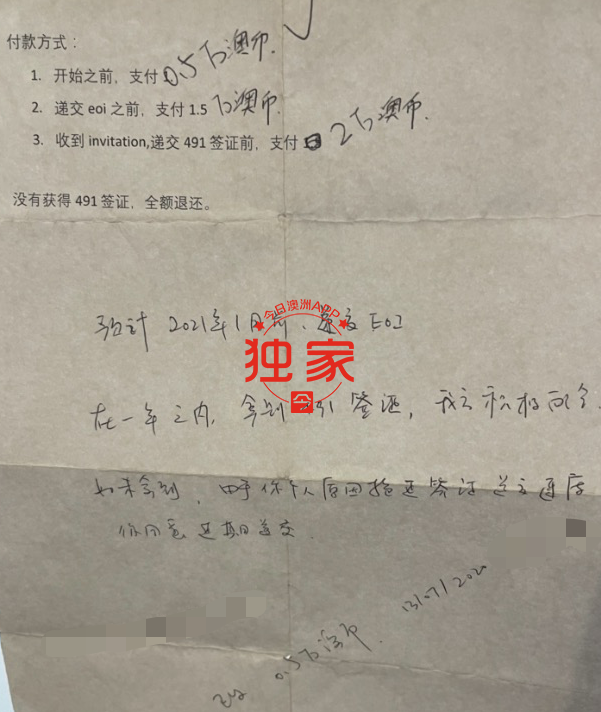 付款方式：
1. 开始之前，支付 0.5万澳币.
2. 递交 eoi 之前，支付 1.5 万澳币.
3. 收到 invitation,递交 491 签证前，支付 2万澳币.
没有获得 491 签证，全额退还。
预计 2021年1月前、递交 EOI
今日澳洲APP
独家
在一年之内, 拿到 签证,
如果拿到, 由于你个人原因 签证递交
你同意延期递交.
0.5万澳币. 13/07/2020